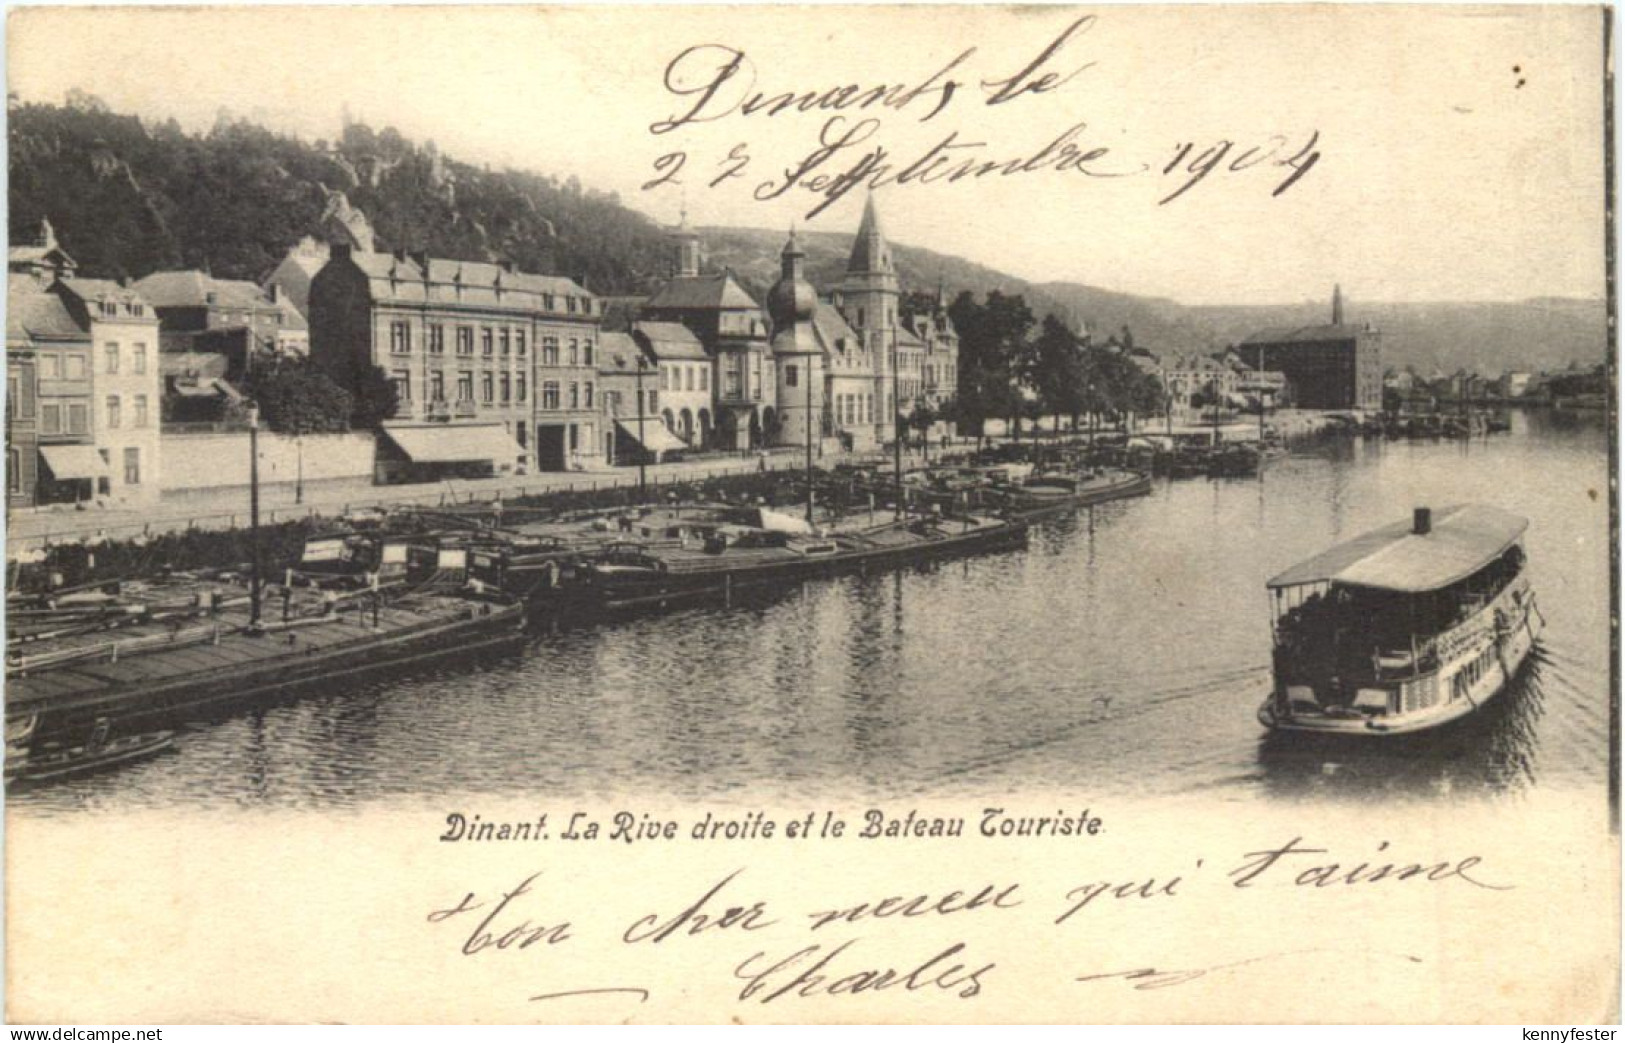 Dinant, le
27 Septembre 1904
Dinant. La Rive droite et le Bateau Touriste.
Ton cher neveu qui t'aime
Charles
www.delcampe.net
kennyfester